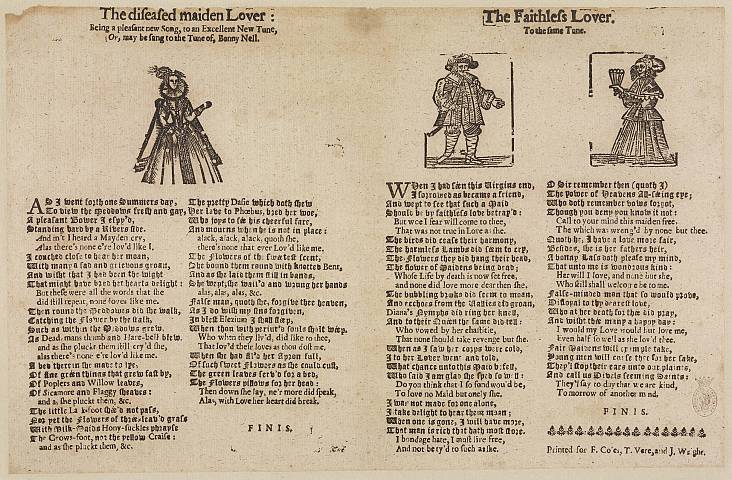 The diseased maiden Lover:
Being a pleasant new Song, to an Excellent New Tune,
Or, may be sung to the Tune of, Bonny Nell.
AS I went forth one Summers day,
To view the Meddows fresh and gay,
A pleasant Bower I espy'd,
Standing hard by a Rivers side.
And in't I heard a Mayden cry,
Alas there's none e're lov'd like I.
I couched close to hear her moan,
With many a sad and grievous groan,
And wisht that I had been the wight
That might have bred her hearts delight:
But these were all the words that she
did still repeat, none loves like me.
Then round the Meddows did she walk,
Catching the Flower by the stalk,
Such as within the Meddows grew.
As Dead-mans thumb and Hare-bell blew.
and as she pluckt them still cry'd she,
alas there's none e're lov'd like me.
A bed therein she made to lye,
Of fine green things that grew fast by,
Of Poplers and Willow leaves,
Of Sicamore and Flaggy sheaves:
and as she pluckt them, &c.
The little Larksfoot she'd not pass,
Nor yet the Flowers of three-leav'd grass
With Milk-Maids Hony-suckles phrayse
The Crows-foot, nor the yellow Craise:
and as she pluckt them, &c.
The pretty Dasie which doth shew
Her love to Phœbus, bred her woe,
Who joys to see his cheerful fare,
And mourns when he is not in place:
alack, alack, alack, quoth she,
there's none that ever Lov'd like me.
The Flowers of the sweetest scent,
She bound them round with knotted Bent,
And as she laid them still in bands,
She wept, she wail'd and wrung her hands
alas, alas, alas, &c.
False man, quoth she, forgive thee heaven,
As I do wish my sins forgiven,
In blest Elizium I shall sleep,
When thou with perjur'd souls shalt weep.
Who when they liv'd, did like to thee,
That lov'd their loves as thou dost me.
When she had fil'd her Apron full,
Of such sweet Flowers as she could cull,
The green leaves serv'd for a bed,
The Flowers pillows for her head:
Then down she lay, ne'r more did speak,
Alas, with Love her heart did break.
FINIS,
The Faithless Lover.
To the same Tune.
WHen I had seen this Virgins end,
I sorrowed as became a friend,
And wept to see that such a Maid
Should be by faithless love betray'd:
But woe I fear will come to thee,
That was not true in Love as she.
The birds did cease their harmony,
The harmless Lambs did seem to cry,
The Flowers they did hang their head,
The flower of Maidens being dead,
Whose Life by death is now set free,
and none did love more dear then she.
The bubling brooks did seem to moan,
And ecchoes from the Vallies did groan,
Diana's Nymphs did ring her knell,
And to their Queen the same did tell:
Who vowed by her chastitie,
That none should take revenge but she.
When as I saw her corps were cold,
I to her Lover went and told,
What chance unto this Maid befell,
Who said I am glad she sped so well:
Do you think that I so fond wou'd be,
To love no Maid but onely she.
I was not made for one alone,
I take delight to hear them moan;
When one is gone, I will have more,
That man is rich that hath most store.
I bondage hate, I must live free,
And not be ty'd to such as she.
O Sir remember then (quoth I)
The power of Heavens All-seeing eye;
Who doth remember vows forgot,
Though you deny you know it not:
Call to your mind this maiden free,
The which was wrong'd by none but thee.
Quoth he, I have a love more fair,
Besides, she is her fathers heir,
A bonny Lass doth please my mind,
That unto me is wondrous kind:
Her will I love, and none but she,
Who still shall welcome be to me.
False-minded man that so would prove,
Disloyal to thy dearest love,
Who at her death for thee did pray,
And wisht thee many a happy day:
I would my Love would but love me,
Even half so well as she lov'd thee.
Fair Maidens will example take,
Young men will curse thee for her sake,
They'l stop their ears unto our plaints,
And call us Divels seeming Saints:
They'l say to day that we are kind,
To morrow of another mind.
FINIS.
Printed for F. Coles, T. Vere, and J. Wright.